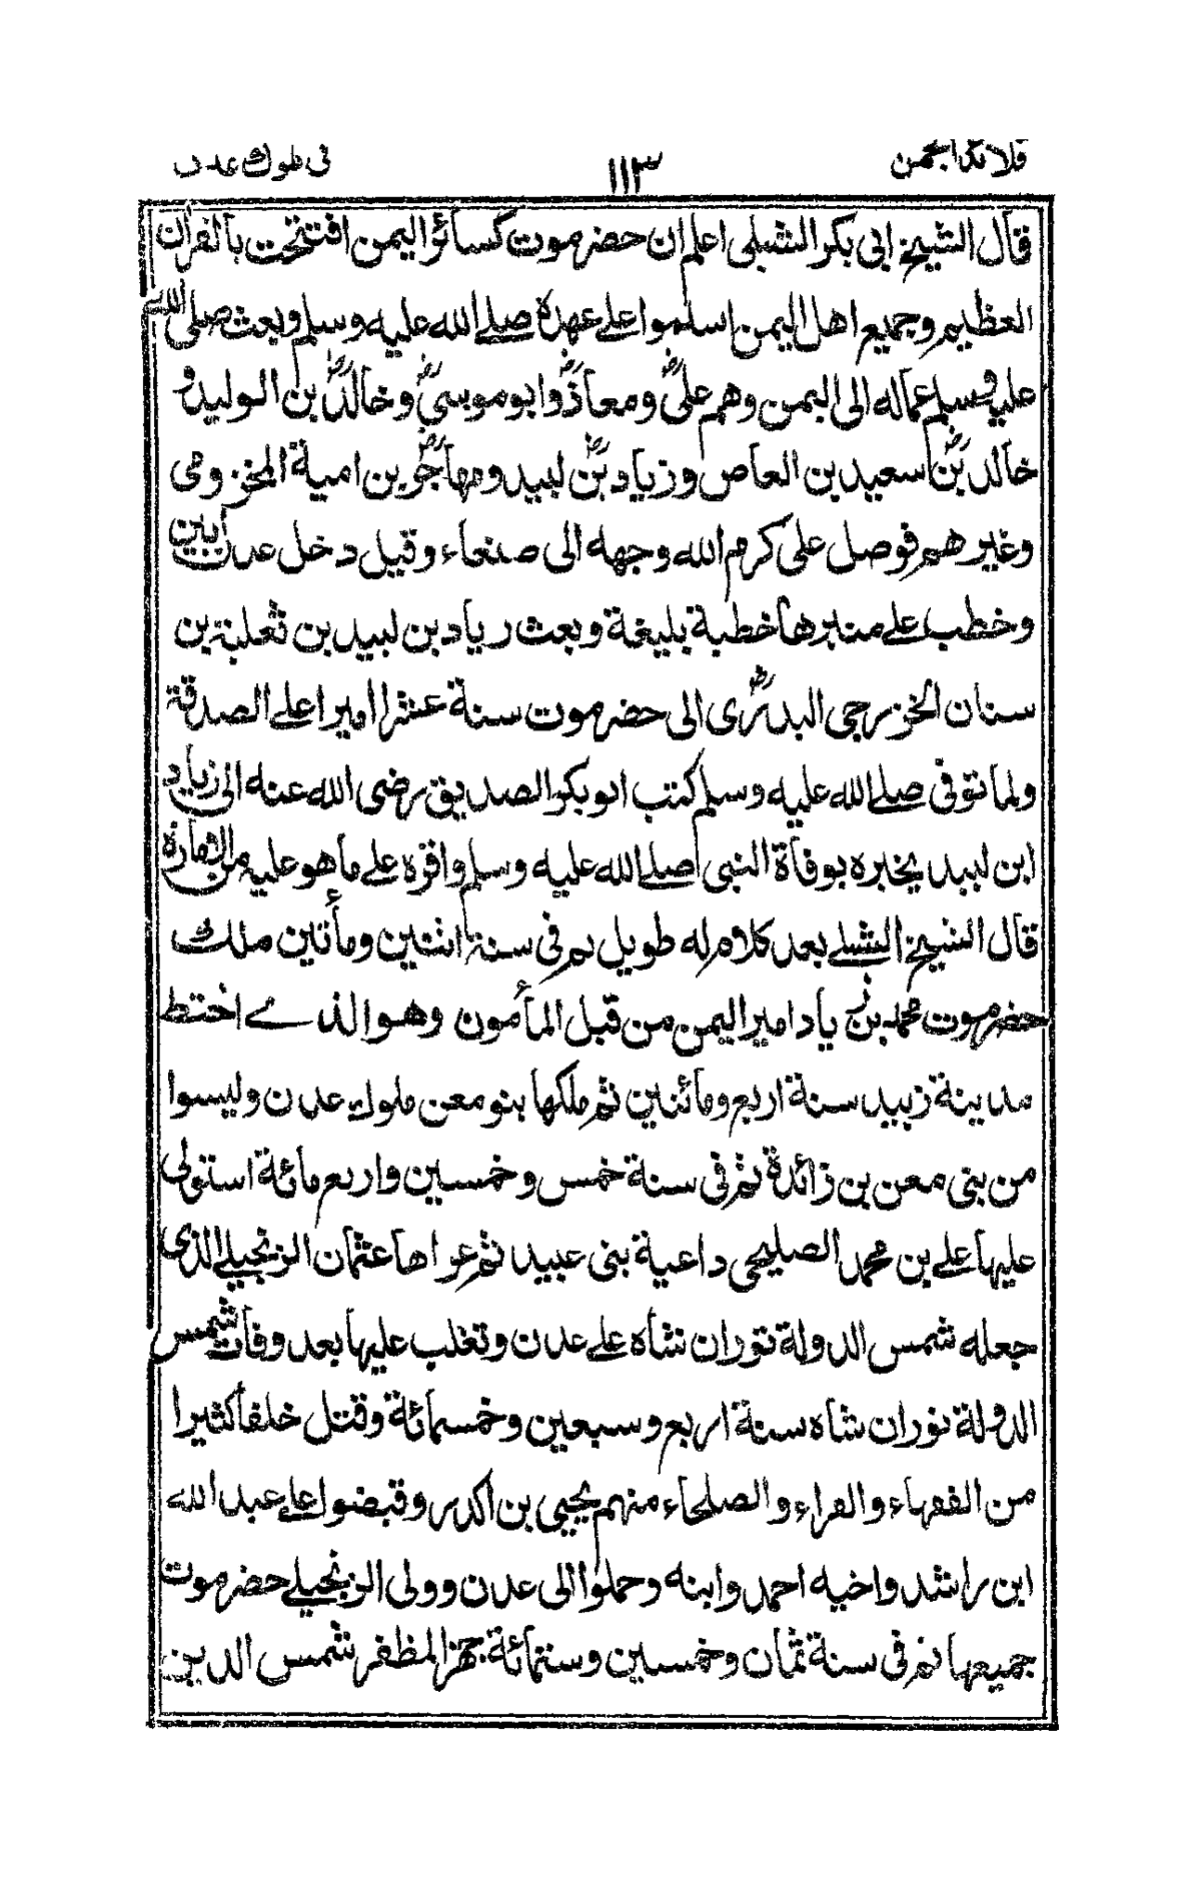 قلائد الجمن ١١٣ فى ملوك عدن
قال الشيخ ابى بكر الشبلى اعلم ان حضرموت كسائر اليمن افتتحت بالقران
العظيم وجميع اهل اليمن اسلموا على عهده صلے الله عليه وسلم وبعث صلى الله
عليه وسلم عماله الى اليمن وهم علىؓ ومعاذؓ وابو موسىؓ وخالدؓ بن الوليد و
خالد بنؓ سعيد بن العاص وزياد بنؓ لبيد ومهاجرؓ بن امية المخزومى
وغيرهم فوصل على كرم الله وجهه الى صنعاء وقيل دخل عدن ابين
وخطب علے منبرها خطبة بليغة وبعث زياد بن لبيد بن ثعلبة بن
سنان الخزرجى البدرىؓ الى حضرموت سنة عشر اميرا علے الصدقة
ولما توفى صلے الله عليه وسلم كتب ابو بكر الصديق رضى الله عنه الى زياد
ابن لبيد يخبره بوفاة النبى صلے الله عليه وسلم واقره علے ما هو عليه من الامارة
قال الشيخ الشبلے بعد كلام له طويل ثم فى سنة اثنتين ومأتين ملك
حضرموت محمد بن زياد امير اليمن من قبل المأمون وهو الذے اختط
مدينة زبيد سنة اربع ومائتين ثم ملكها بنو معن ملوك عدن وليسوا
من بنى معن بن زائدة ثم فى سنة خمس وخمسين واربع مائة استولى
عليها علے بن محمد الصليحى داعية بنى عبيد ثم عراها عثمان الزنجيلے الذى
جعله شمس الدولة توران شاه علے عدن وتغلب عليها بعد وفات شمس
الدولة توران شاه سنة اربع وسبعين وخمسمائة وقتل خلقا كثيرا
من الفقهاء والقراء والصلحاء منهم يحيى بن اكدر وقبضوا علے عبد الله
ابن راشد واخيه احمد وابنه وحملوا الى عدن وولى الزنجيلے حضرموت
جميعها ثم فى سنة ثمان وخمسين وستمائة جهز المظفر شمس الدين